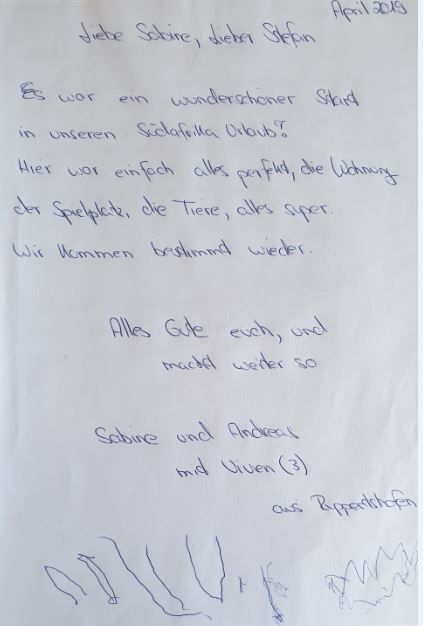 April 2019
Liebe Sabine, Lieber Stefan
Es war ein wunderschöner Start
in unseren Südafrika Urlaub!
Hier war einfach alles perfekt, die Wohnung
der Spielplatz, die Tiere, alles super.
Wir kommen bestimmt wieder.
Alles Gute euch, und
macht weiter so
Sabine und Andreas
mit Viven (3)
aus Ruppertshofen